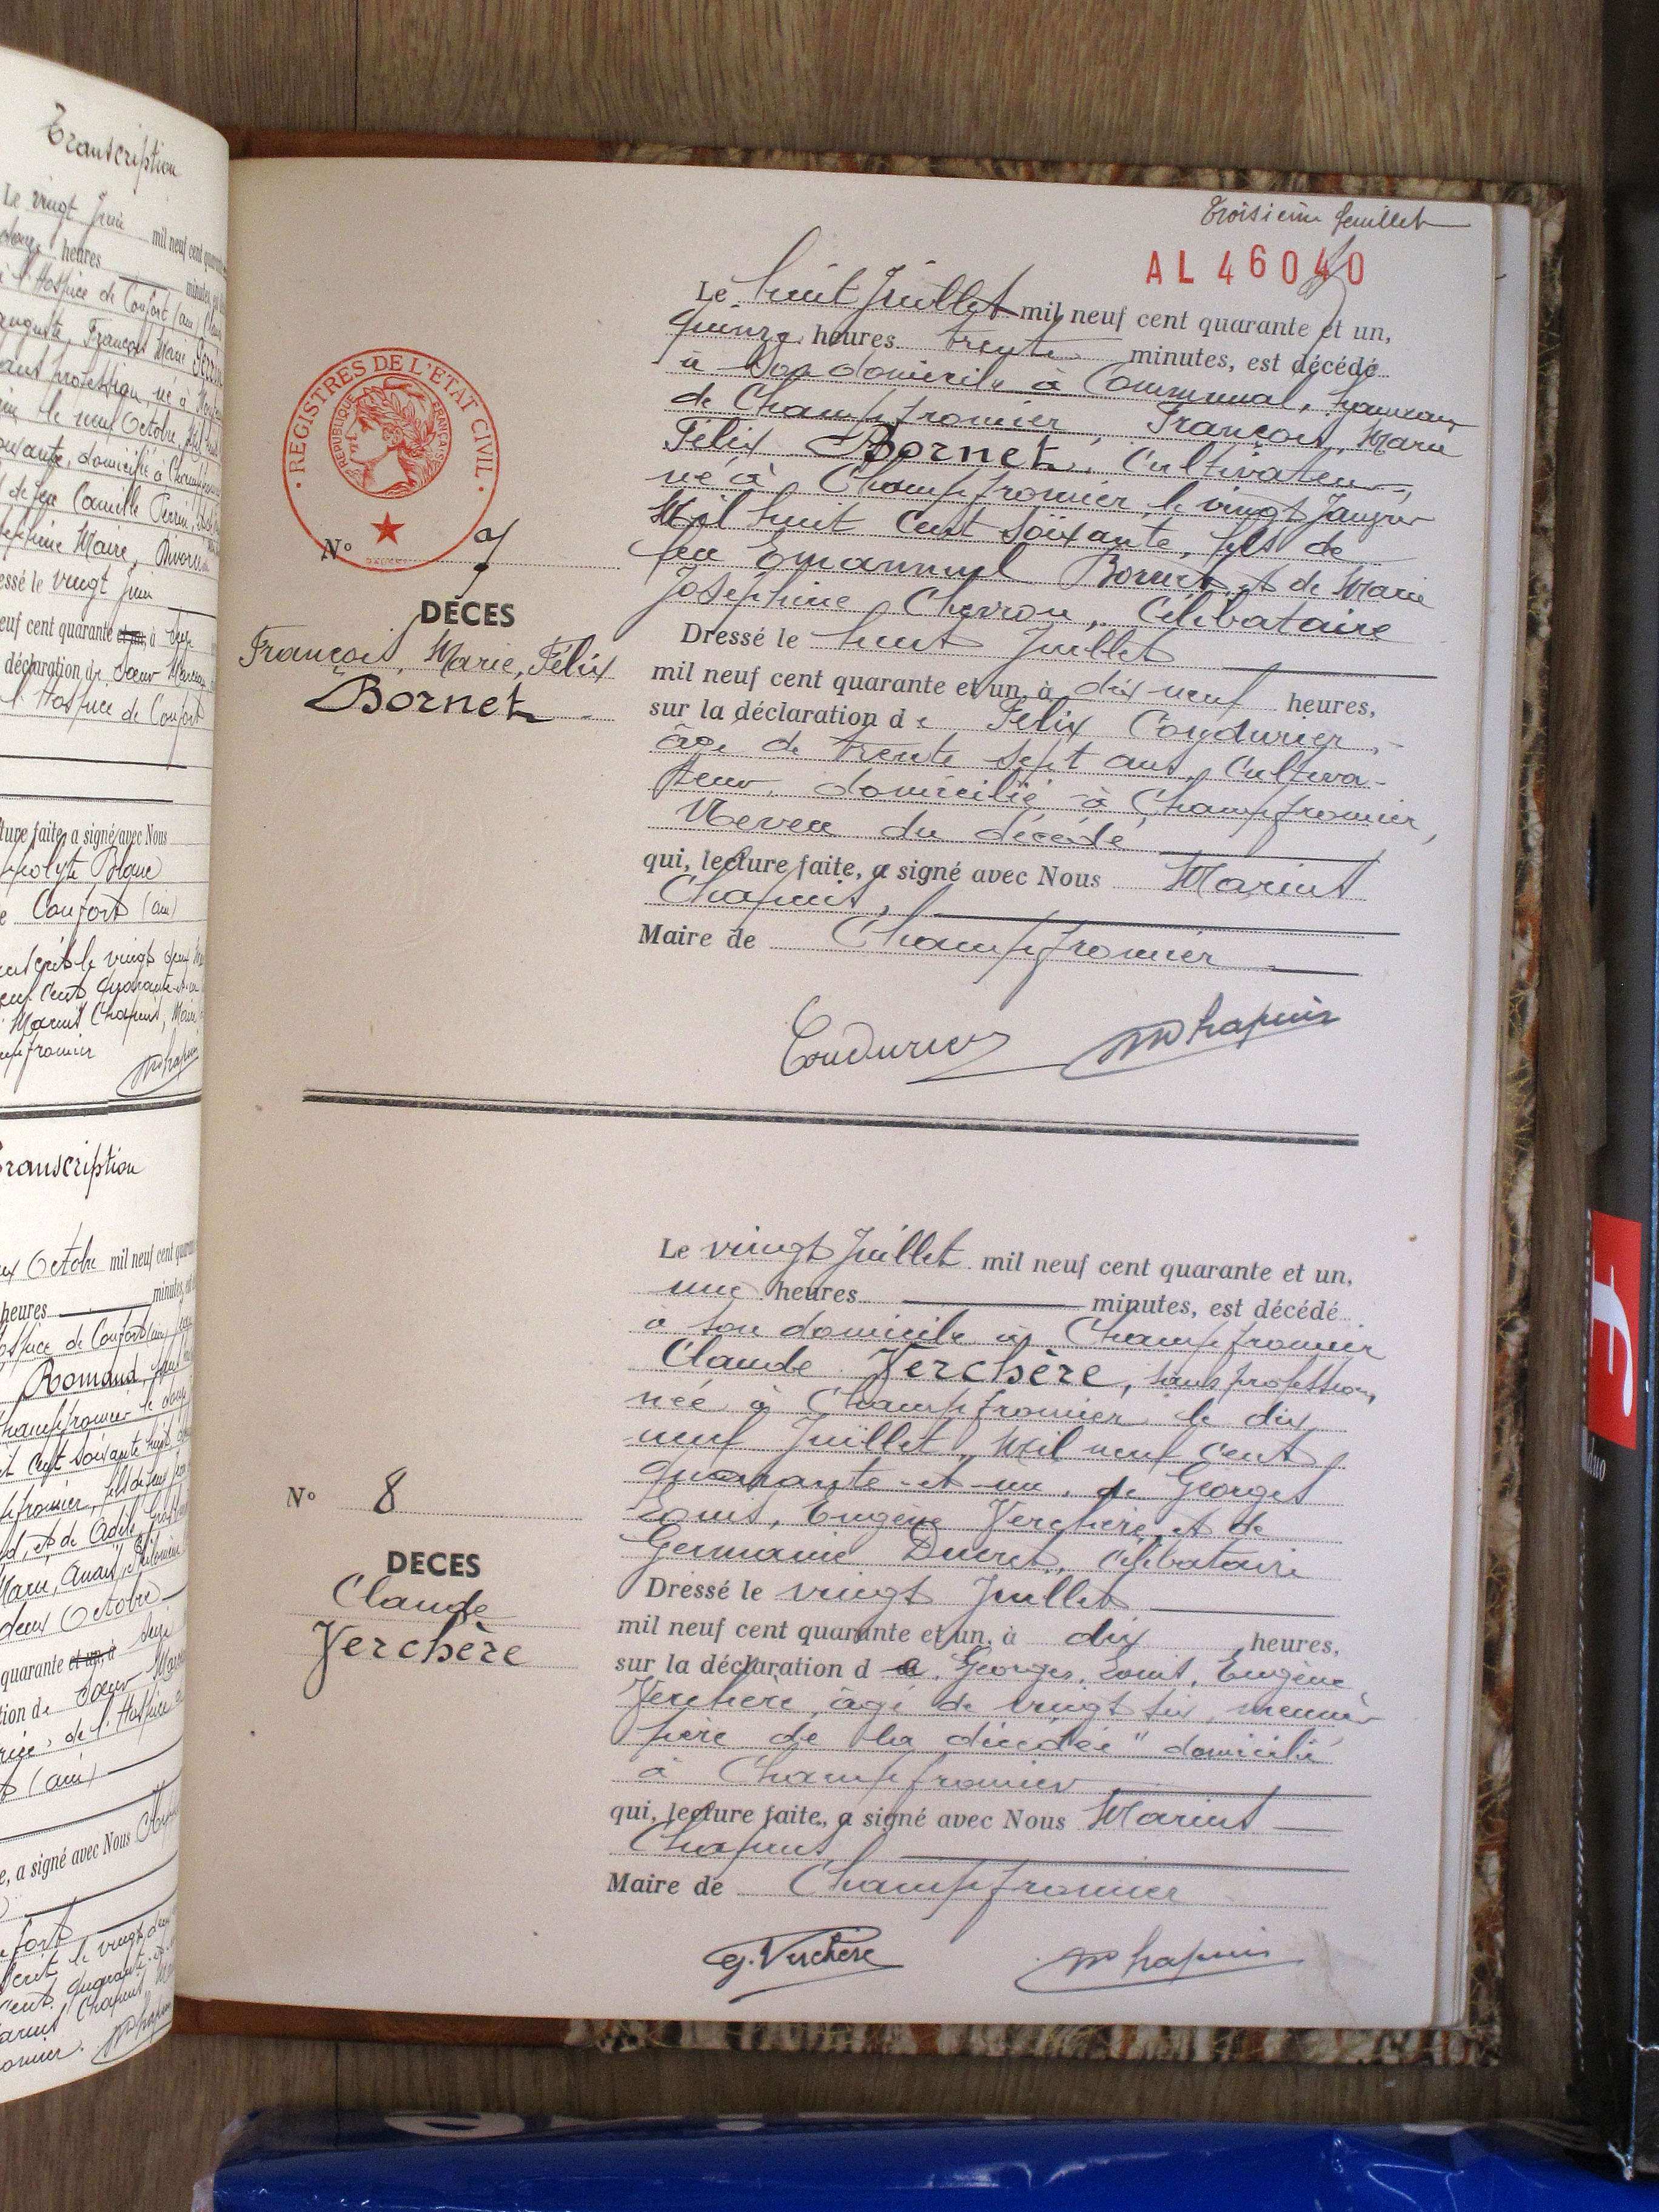 Transcription
Le vingt Juin mil neuf cent
heures minutes
l'Hospice de Confort (ain)
François Marie
profession, né à
le neuf Octobre
domicilié à
de feu Camille Perrin
Maire
Dressé le vingt Juin
neuf cent quarante et un, à
déclaration de Sœur
l'Hospice de Confort
lecture faite, a signé avec Nous
Blanc
Confort (ain)
le vingt
cent quarante et un
Marius Chapuis, Maire
Transcription
Octobre mil neuf cent
heures minutes
de Confort (ain)
Romand
Champfromier le
cent soixante huit
fils de feu
et de Adèle
Marie, Anaïs, Philomène
deux Octobre
quarante et un, à
de Sœur
de l'Hospice
(ain)
a signé avec Nous
le vingt deux
cent quarante et
Marius Chapuis
Troisième feuillet
AL 46040
Le huit Juillet mil neuf cent quarante et un,
quinze heures trente minutes, est décédé
à son domicile à Communal, hameau
de Champfromier, François, Marie
Félix Bornet, Cultivateur,
né à Champfromier, le vingt Janvier
Mil huit Cent Soixante, fils de
feu Emannuel Bornet, et de Marie
Joséphine Chevron, Célibataire
Dressé le huit Juillet
mil neuf cent quarante et un, à dix-neuf heures,
sur la déclaration de Félix Coudurier,
âge de trente sept ans, Cultiva-
teur, domicilié à Champfromier,
Neveu du décédé
qui, lecture faite, a signé avec Nous Marius
Chapuis,
Maire de Champfromier
Coudurier MChapuis
REGISTRES DE L'ETAT CIVIL
REPUBLIQUE FRANÇAISE
N° 7
DÉCES
François, Marie, Félix
Bornet
Le vingt Juillet mil neuf cent quarante et un,
une heures minutes, est décédé
à son domicile à Champfromier
Claude Verchère, sans profession,
née à Champfromier le dix
neuf Juillet, Mil neuf cent
quarante-et-un, de Georges
Louis, Eugène Verchère, et de
Germaine Ducret, Célibataire
Dressé le vingt Juillet
mil neuf cent quarante et un, à dix heures,
sur la déclaration de Georges, Louis, Eugène
Verchère, âgé de vingt six, meunier
père de la décédée" domicilié
à Champfromier
qui, lecture faite, a signé avec Nous Marius
Chapuis
Maire de Champfromier
G. Verchère MChapuis
N° 8
DECES
Claude
Verchère